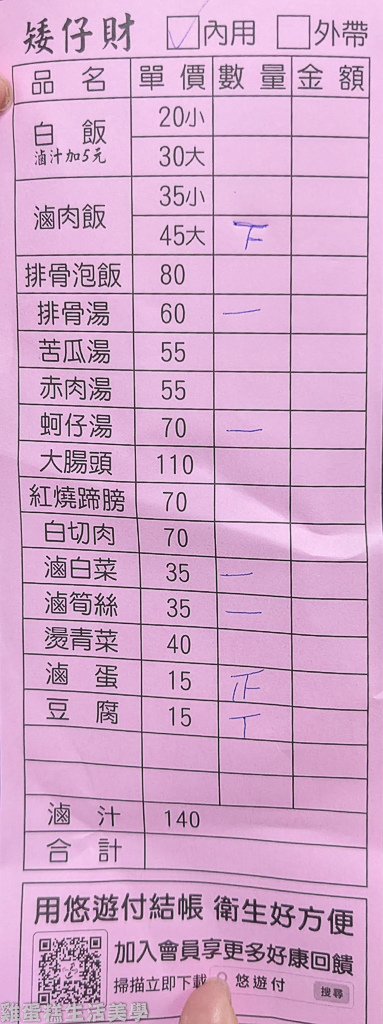 矮仔財 ☑內用 ☐外帶
品名 單價 數量 金額
白飯 20小
滷汁加5元 30大
滷肉飯 35小
45大 下
排骨泡飯 80
排骨湯 60 一
苦瓜湯 55
赤肉湯 55
蚵仔湯 70 一
大腸頭 110
紅燒蹄膀 70
白切肉 70
滷白菜 35 一
滷筍絲 35 一
燙青菜 40
滷蛋 15 正
豆腐 15 丅
滷汁 140
合計
用悠遊付結帳 衛生好方便
加入會員享更多好康回饋
掃描立即下載 悠遊付 搜尋
雞蛋糕生活美學